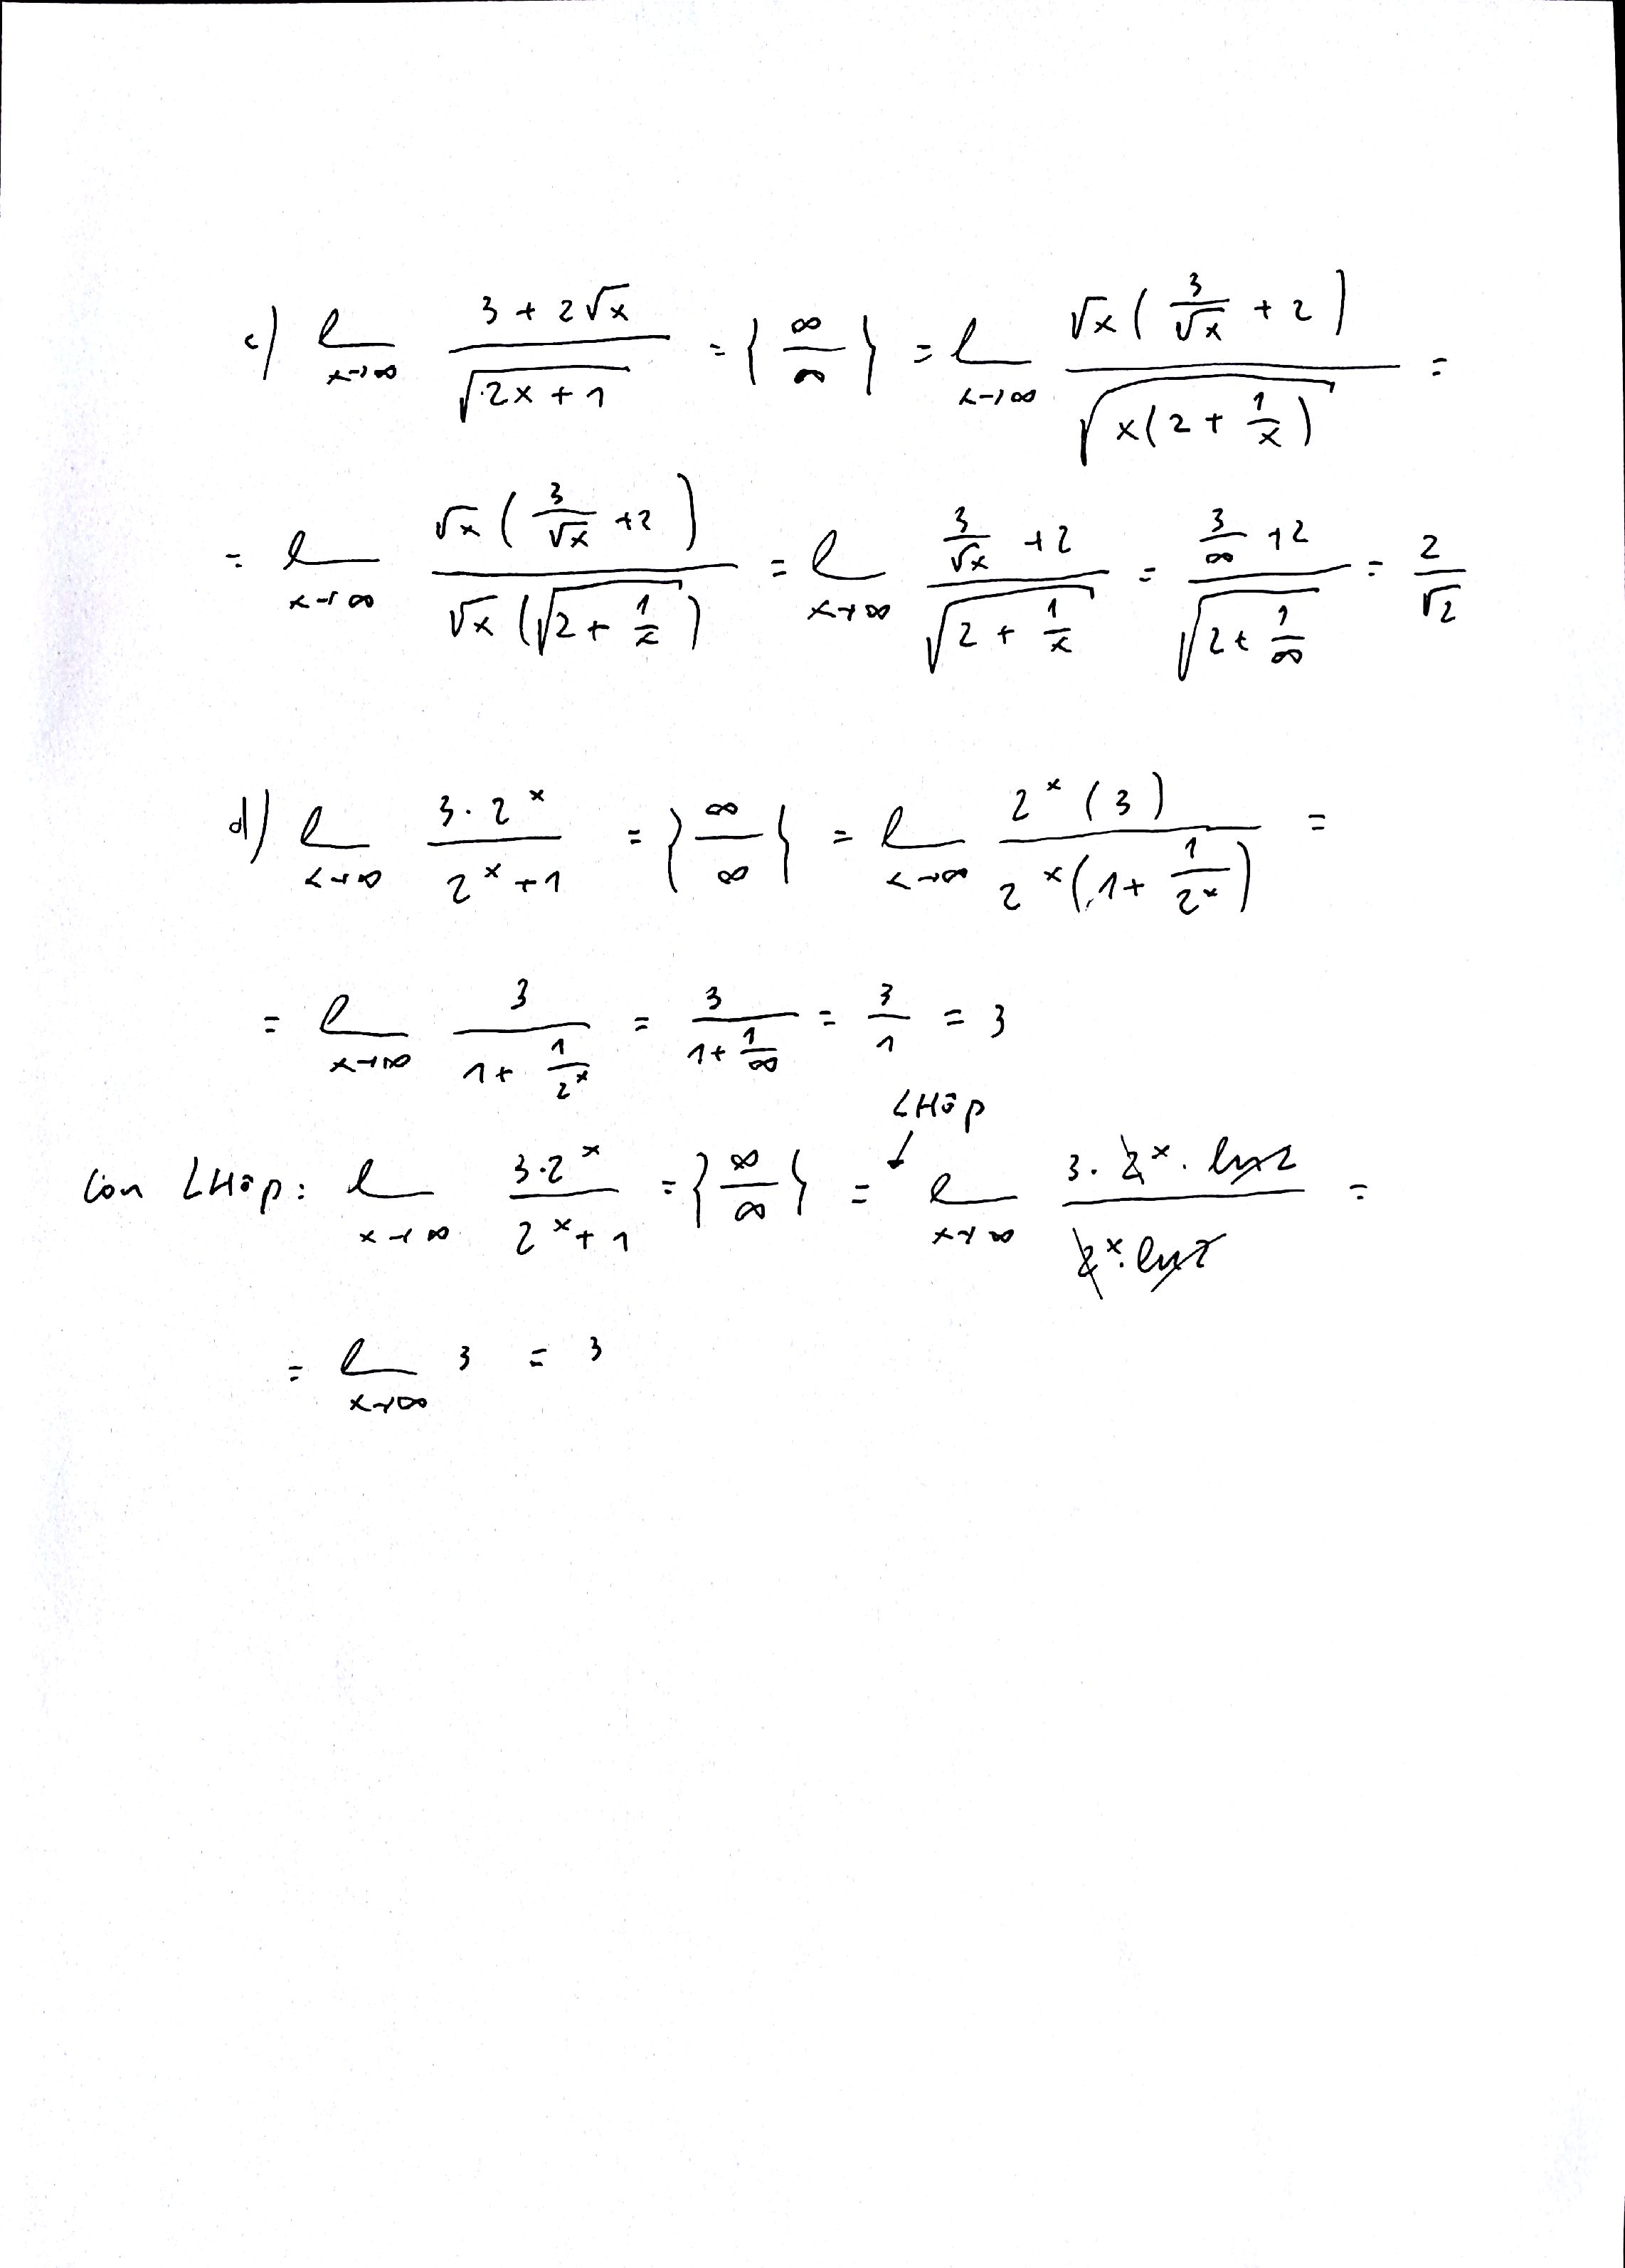 c) lim x→∞ (3 + 2√x)/(√(2x + 1)) = {∞/∞} = lim x→∞ (√x(3/√x + 2))/(√(x(2 + 1/x))) =
= lim x→∞ (√x(3/√x + 2))/(√x(√(2 + 1/x))) = lim x→∞ (3/√x + 2)/(√(2 + 1/x)) = (3/∞ + 2)/(√(2 + 1/∞)) = 2/√2
d) lim x→∞ (3·2^x)/(2^x + 1) = {∞/∞} = lim x→∞ (2^x(3))/(2^x(1 + 1/2^x)) =
= lim x→∞ 3/(1 + 1/2^x) = 3/(1 + 1/∞) = 3/1 = 3
LHôp
↓
Con LHôp: lim x→∞ (3·2^x)/(2^x + 1) = {∞/∞} = lim x→∞ (3·2^x·ln2)/(2^x·ln2) =
= lim x→∞ 3 = 3